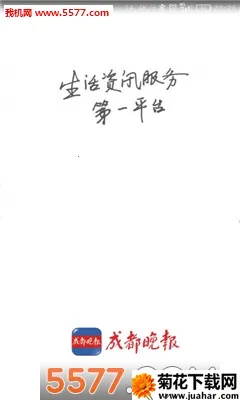 我机网
www.5577.com
生活资讯服务
第一平台
成都晚报
成都晚报
5577
菊花下载网
www.juahar.com